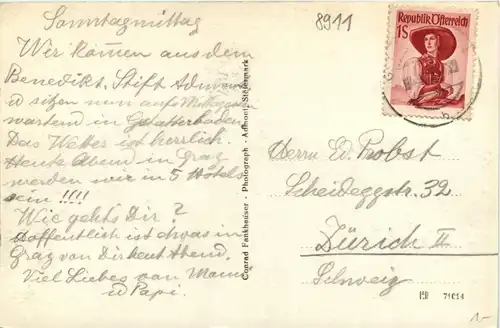 Sonntagmittag
Wir kommen aus dem
Benedikt. Stift Admont
u sitzen nun aufs Mittagessen
wartend in Gstatterboden
Das Wetter ist herrlich.
Heute Abend in Graz
werden wir in 5 Hotels
sein !!!!
Wie gehts Dir ?
Hoffentlich ist etwas in
Graz von Dir heut Abend.
Viel Liebes von Mama
u Papi.
8911
Republik Österreich
1S
Herrn Ed. Probst
Scheideggstr. 32
Zürich II
Schweiz
Conrad Fankhauser - Photograph - Admont, Steiermark
71014